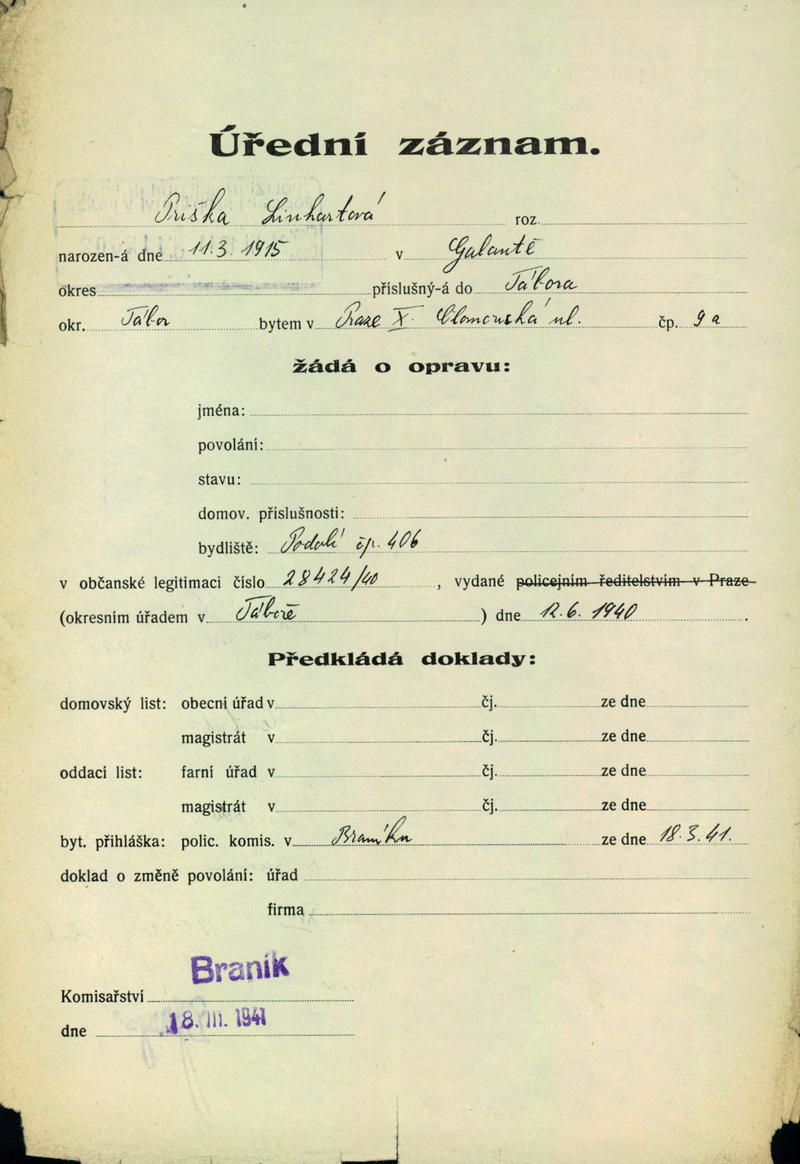 Úřední záznam.
Priška Linhartová roz.
narozen-á dne 11.3. 1915 v Galantě
okres příslušný-á do Tábora
okr. Tábor bytem v Praze X. Olomoucká ul. čp. 9a
žádá o opravu:
jména:
povolání:
stavu:
domov. příslušnosti:
bydliště: Podolí čp. 406
v občanské legitimaci číslo 28424/40, vydané policejním ředitelstvím v Praze
(okresním úřadem v Táboře) dne 12.6. 1940.
Předkládá doklady:
domovský list: obecní úřad v čj. ze dne
magistrát v čj. ze dne
oddací list: farní úřad v čj. ze dne
magistrát v čj. ze dne
byt. přihláška: polic. komis. v Braníku ze dne 18.3.41.
doklad o změně povolání: úřad
firma
Braník
Komisařství
dne 18. III. 1941